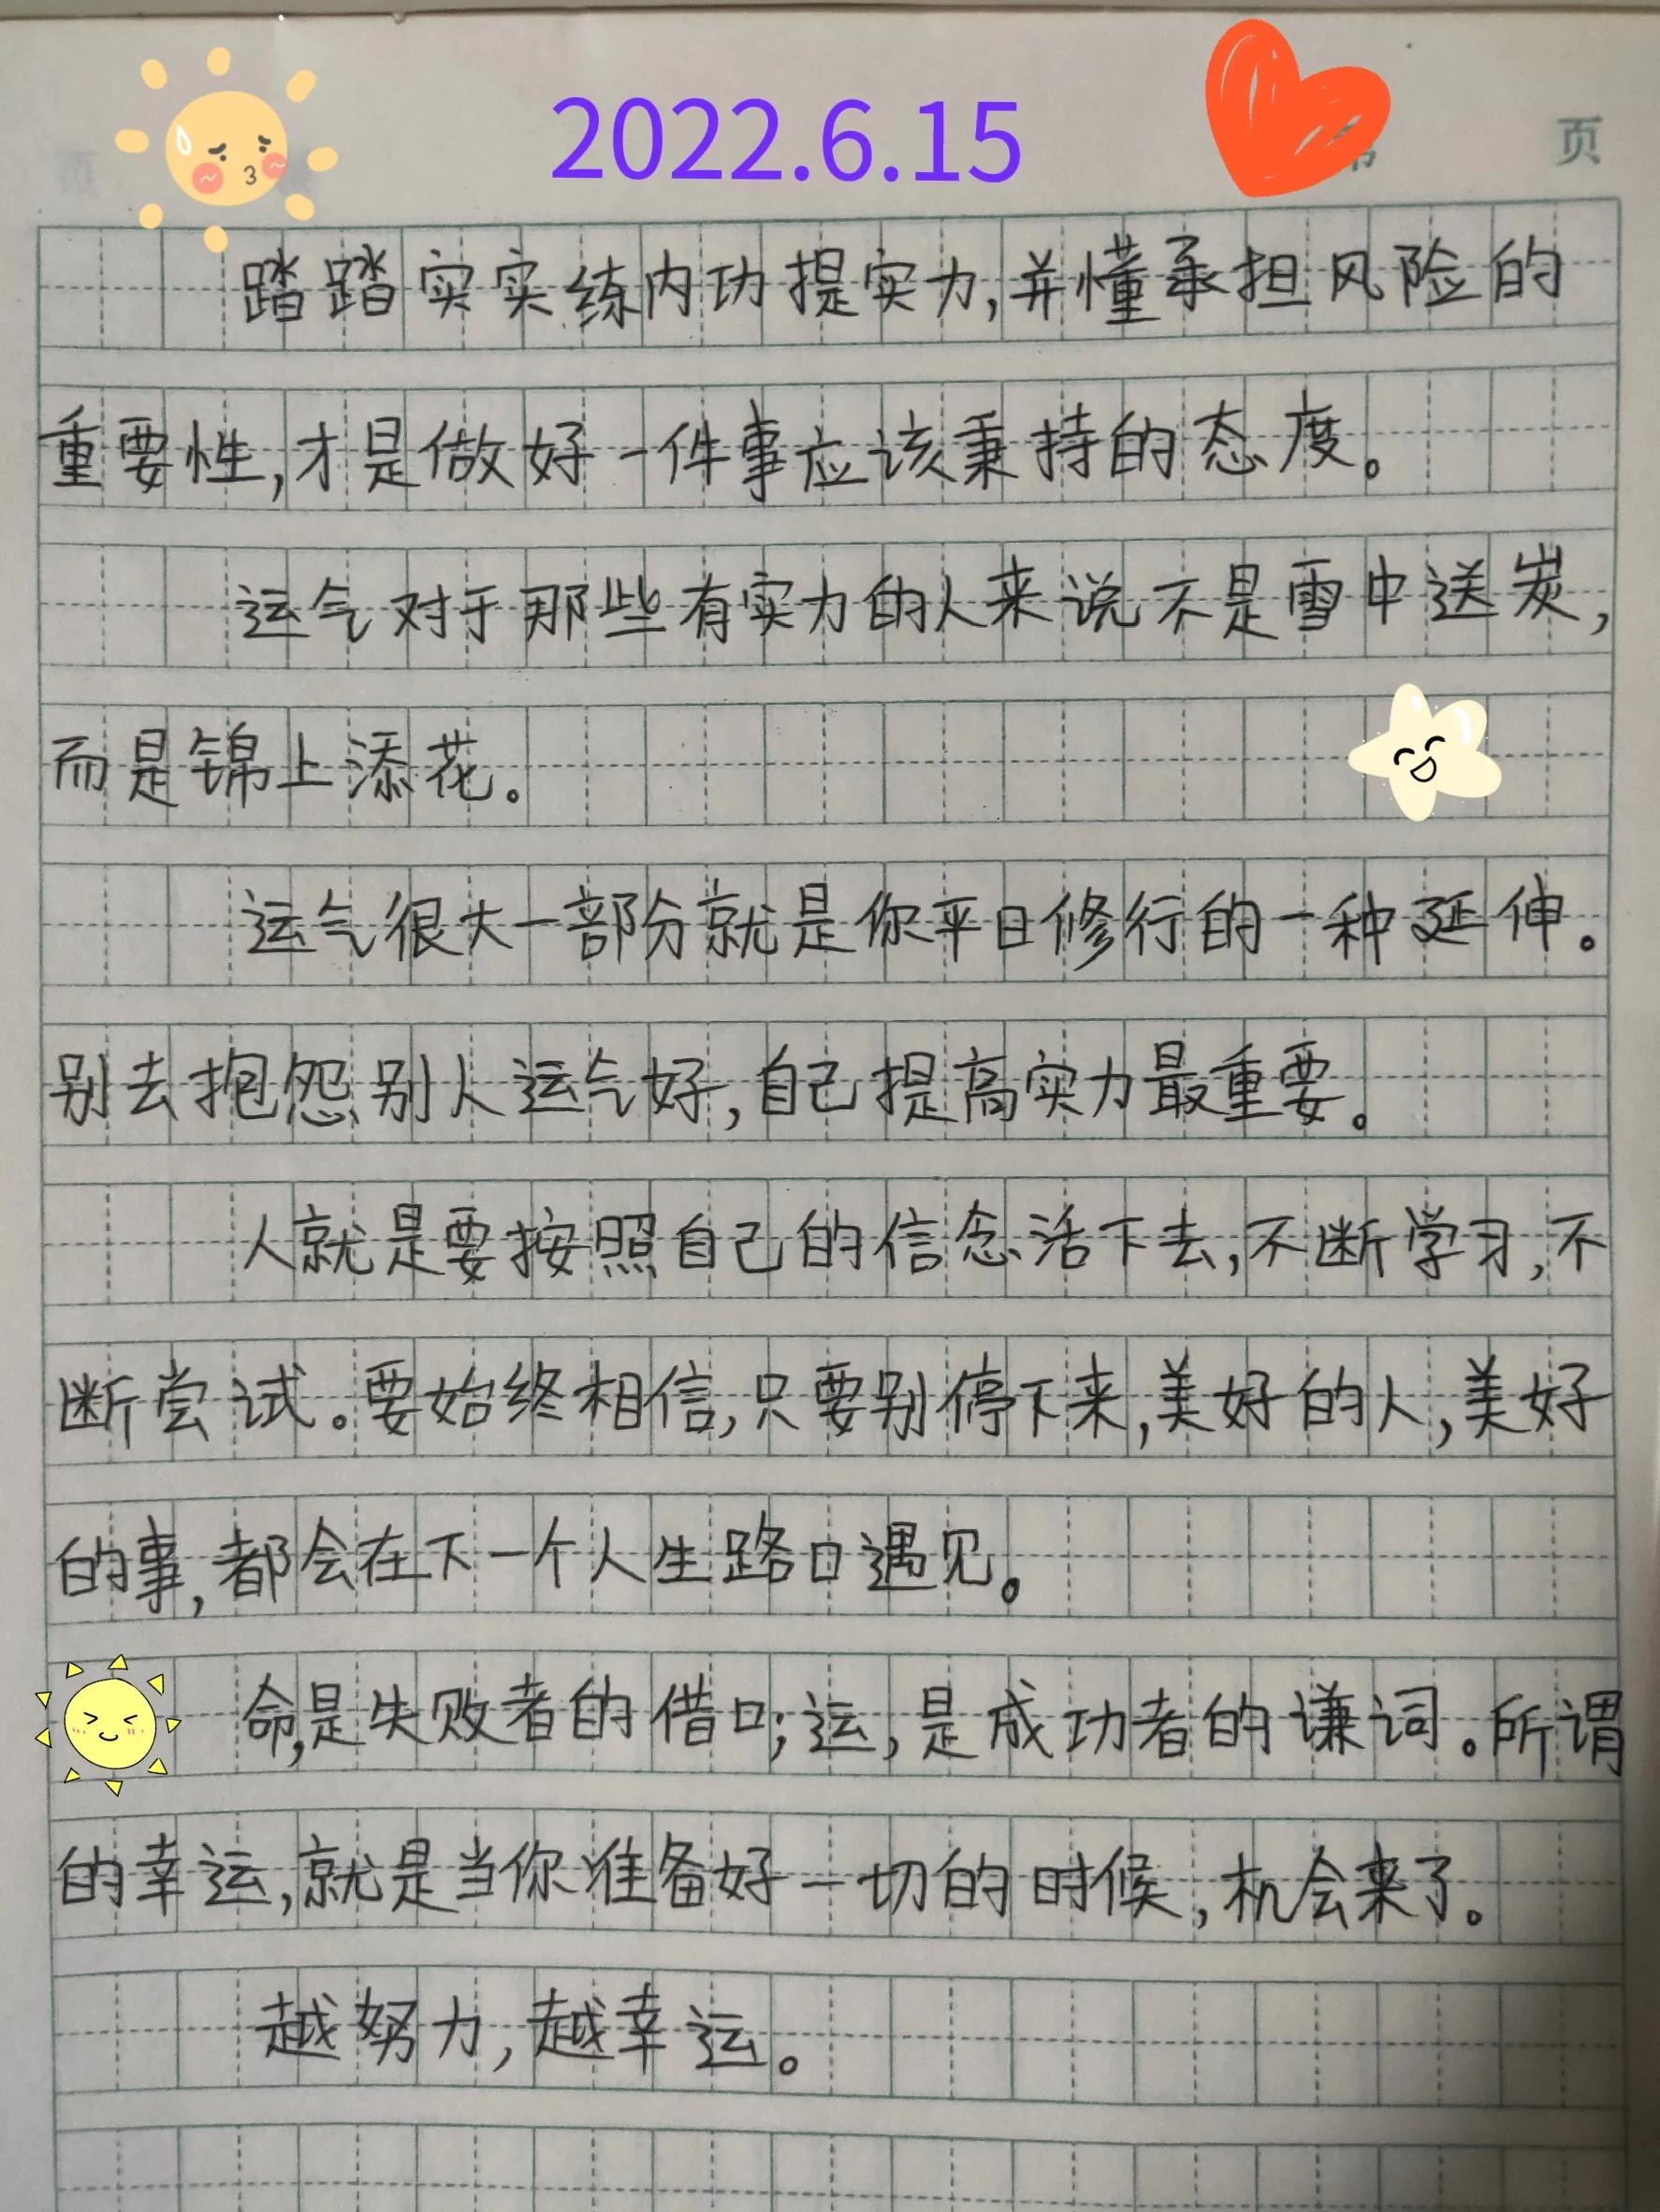 2022.6.15
页
踏踏实实练内功提实力,并懂承担风险的
重要性,才是做好一件事应该秉持的态度。
运气对于那些有实力的人来说不是雪中送炭,
而是锦上添花。
运气很大一部分就是你平日修行的一种延伸。
别去抱怨别人运气好,自己提高实力最重要。
人就是要按照自己的信念活下去,不断学习,不
断尝试。要始终相信,只要别停下来,美好的人,美好
的事,都会在下一个人生路口遇见。
命,是失败者的借口;运,是成功者的谦词。所谓
的幸运,就是当你准备好一切的时候,机会来了。
越努力,越幸运。